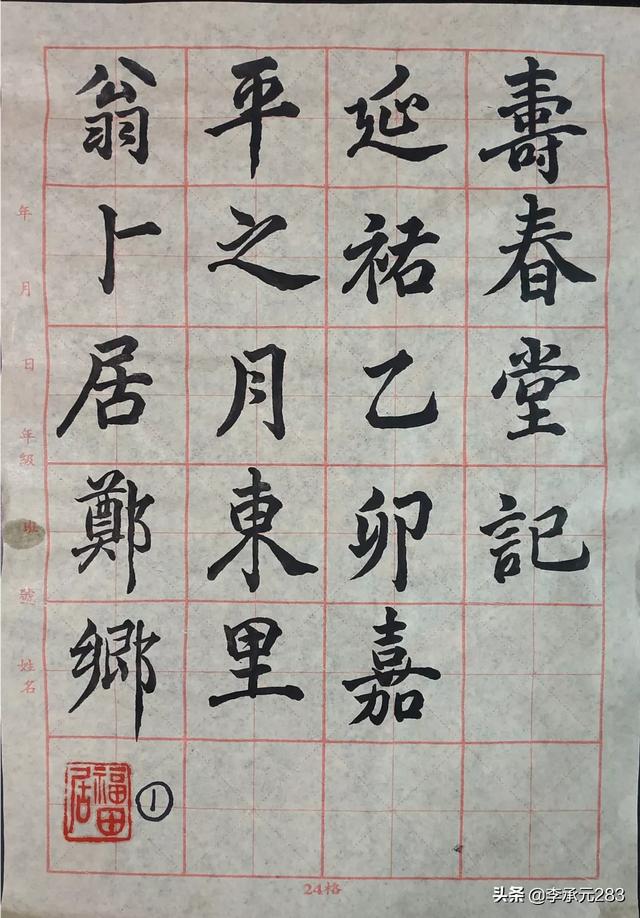 壽春堂記
延祐乙卯嘉
平之月東里
翁卜居鄭鄉
福田居
①
年 月 日 年級 班 號 姓名
24格
头条 @李承元283